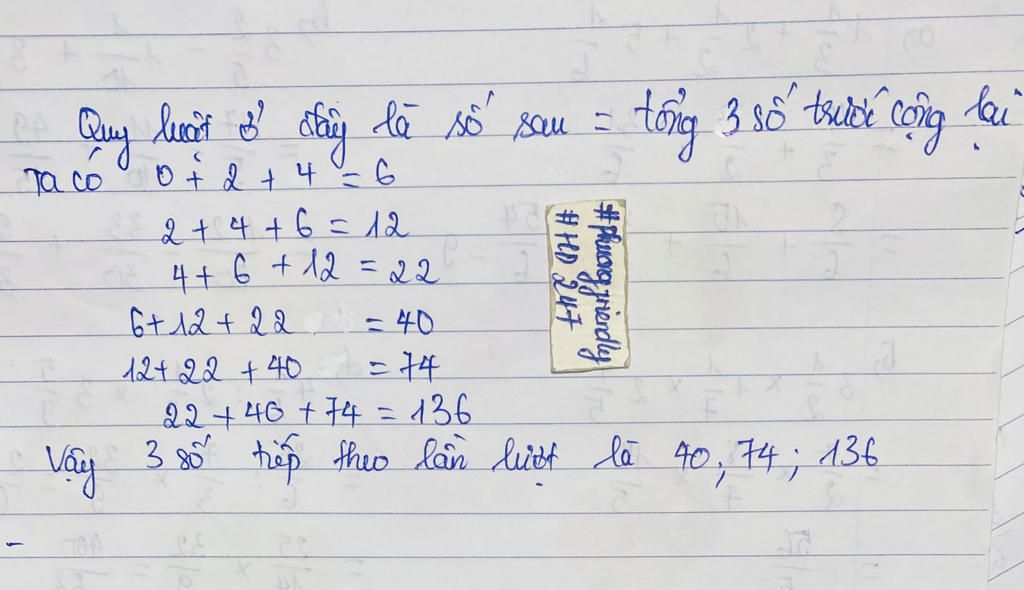 Quy luật ở đây là số sau = tổng 3 số trước cộng lại
Ta có 0 + 2 + 4 = 6
2 + 4 + 6 = 12
4 + 6 + 12 = 22
6 + 12 + 22 = 40
12 + 22 + 40 = 74
22 + 40 + 74 = 136
Vậy 3 số tiếp theo lần lượt là 40, 74; 136
#phuongfriendly
#HD 247